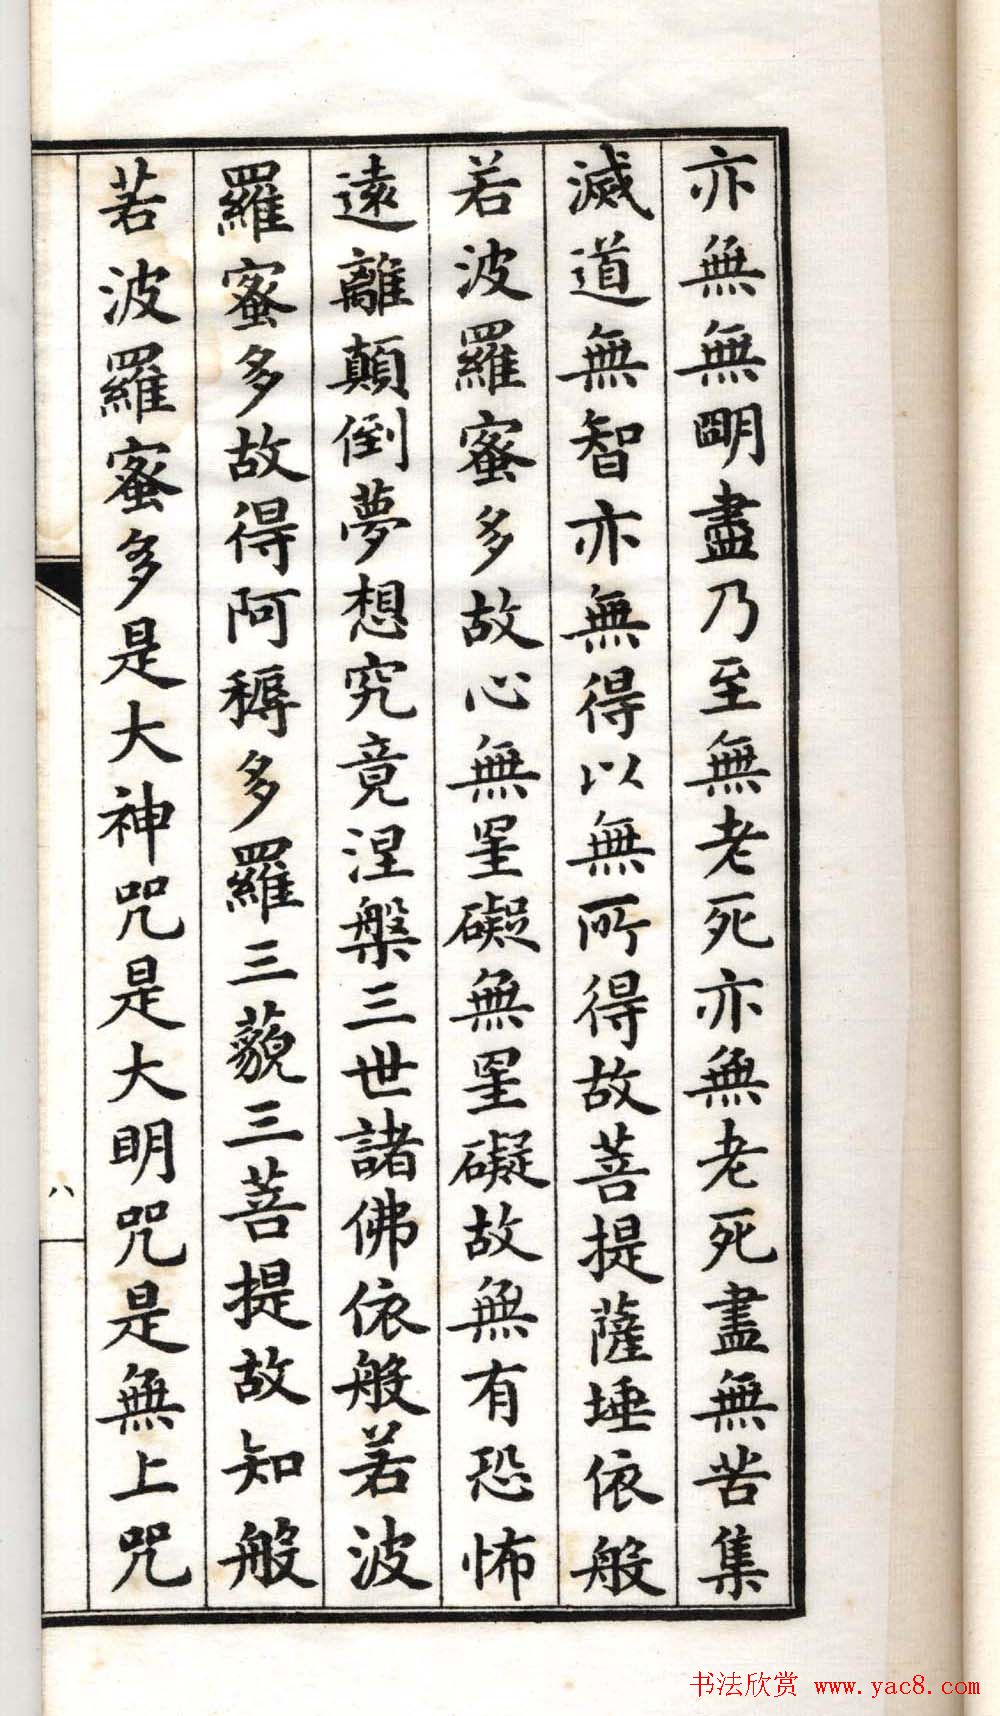 亦無無朙盡乃至無老死亦無老死盡無苦集
滅道無智亦無得以無所得故菩提薩埵依般
若波羅蜜多故心無罣礙無罣礙故無有恐怖
遠離顛倒夢想究竟涅槃三世諸佛依般若波
羅蜜多故得阿耨多羅三藐三菩提故知般
若波羅蜜多是大神咒是大明咒是無上咒
八
书法欣赏 www.yac8.com